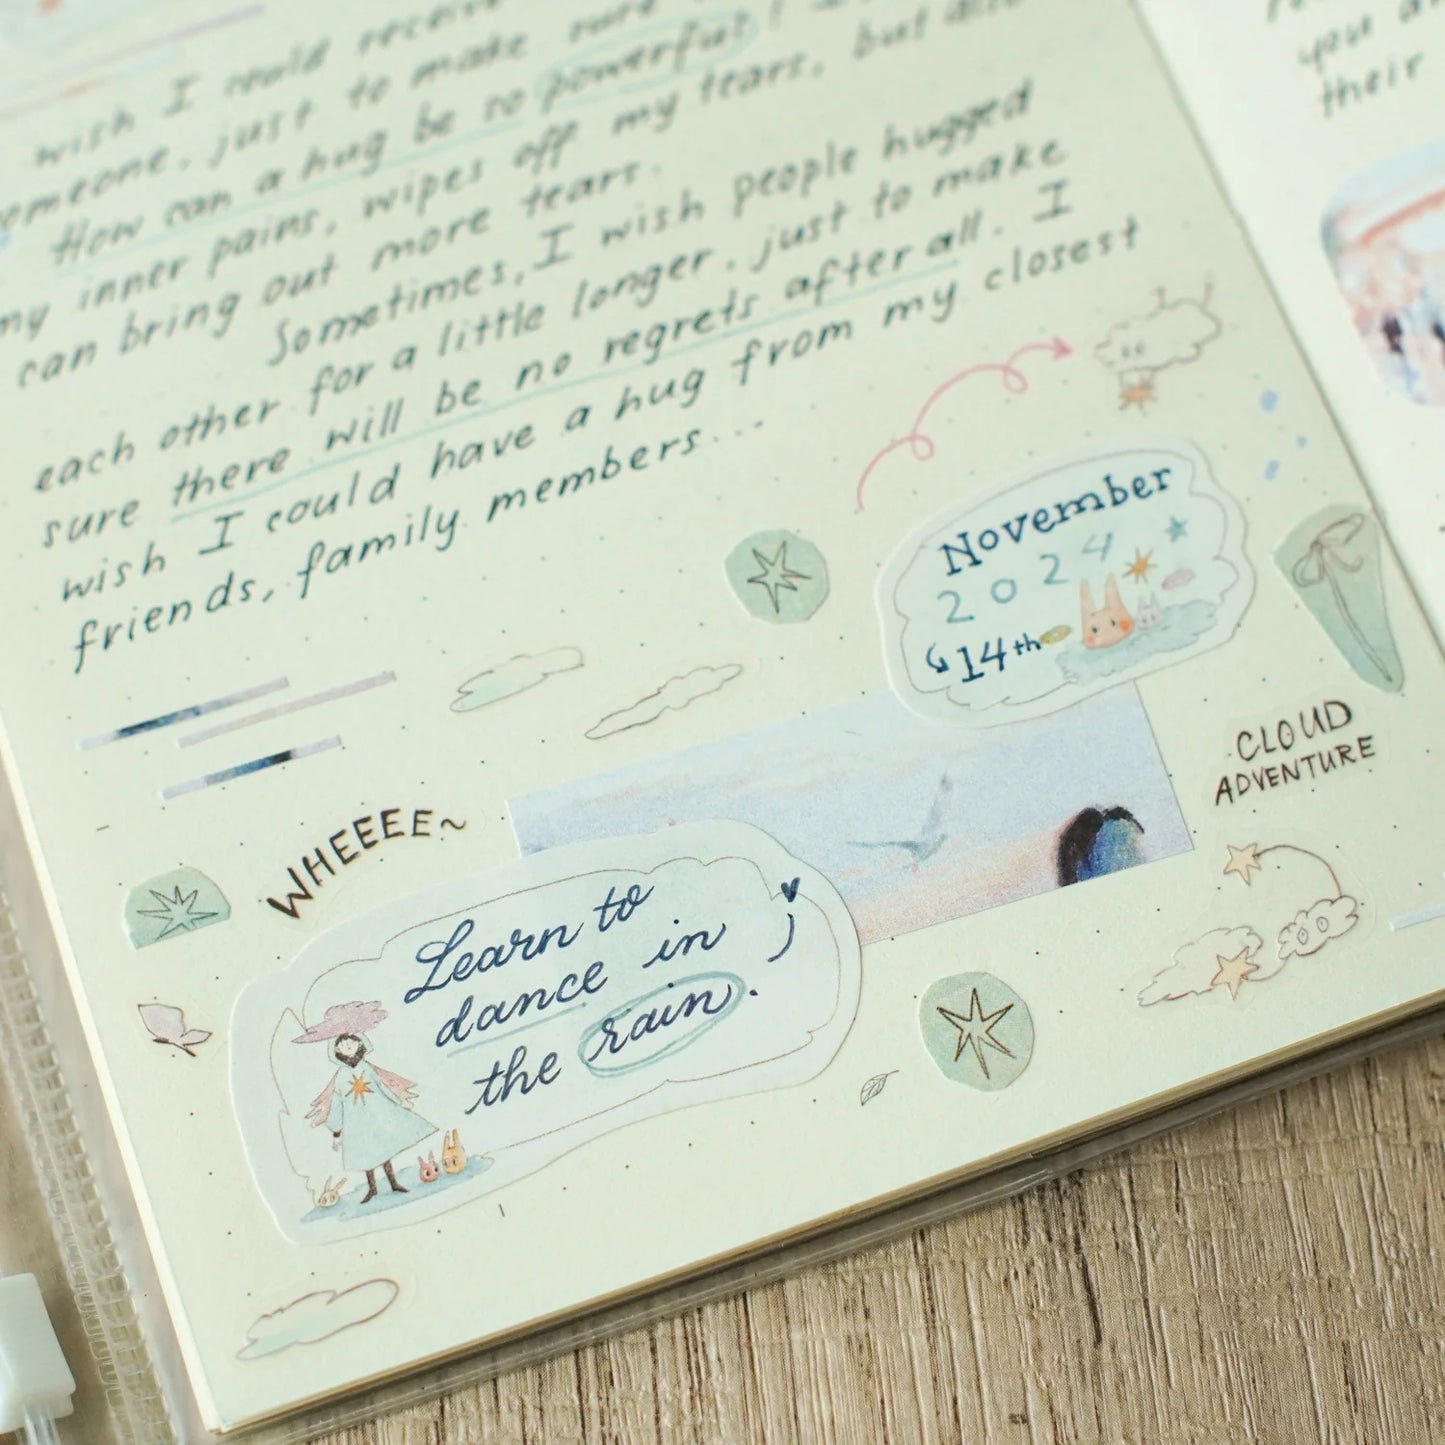 wish I could receive
someone, just to make sure
How can a hug be so powerful!
my inner pains, wipes off my tears, but also
can bring out more tears.
Sometimes, I wish people hugged
each other for a little longer, just to make
sure there will be no regrets after all. I
wish I could have a hug from my closest
friends, family members...
November
2024
14th
CLOUD
ADVENTURE
WHEEEE~
Learn to
dance in
the rain.
you
their